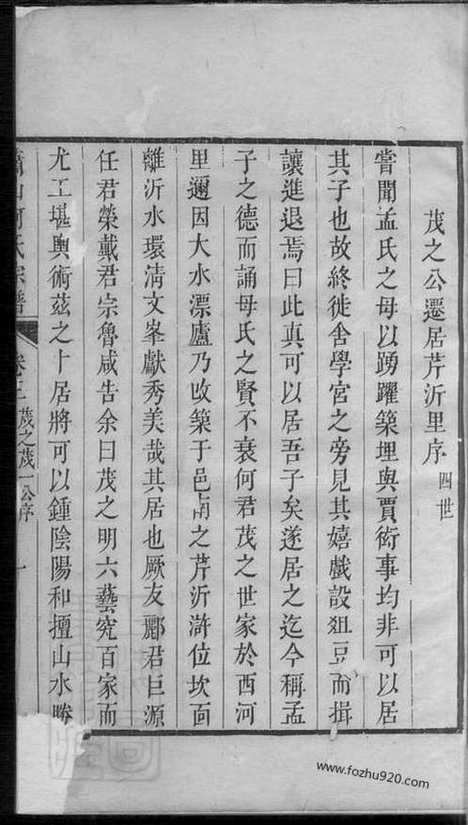 茂之公遷居芹沂里序 四世
嘗聞孟氏之母以踴躍築埋與賈術事均非可以居
其子也故終徙舍學宮之旁見其嬉戲設俎豆而揖
讓進退焉曰此真可以居吾子矣遂居之迄今稱孟
子之德而誦母氏之賢不衰何君茂之世家於西河
里邇因大水漂廬乃改築于邑南之芹沂滸位坎面
離沂水環清文峯獻秀美哉其居也厥友酈君巨源
任君榮戴君宗魯咸告余曰茂之明六藝究百家而
尤工堪輿術茲之卜居將可以鍾陰陽和擅山水勝
蕭山何氏宗譜 卷二 茂之茂一公序 一
www.fozhu920.com